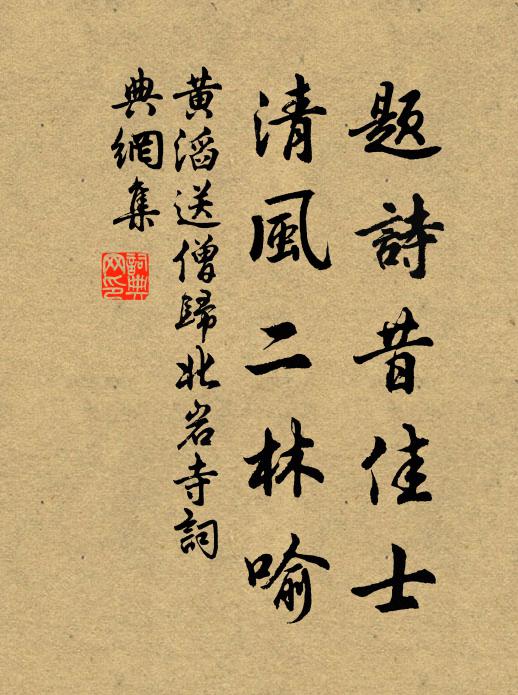 题詩昔佳士
清風二林喻
黃滔送僧歸北岩寺詞
典網集
詞典
网印